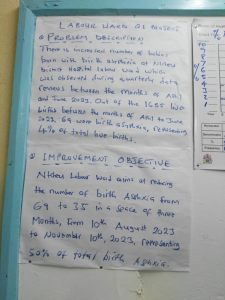 LABOUR WARD QI PROJECT
① PROBLEM DESCRIPTION
There is increased number of babies
born with birth asphyxia at Ntcheu
District Hospital labour ward which
was observed during quarterly data
reviews between the months of April
and June 2023. Out of the 1655 live
births between the months of April to June
2023, 69 were birth asphyxia, representing
4% of total live births.
② IMPROVEMENT OBJECTIVE
Ntcheu Labour Ward aims at reducing
the number of birth Asphyxia from
69 to 35 in a space of three
Months, from 10th August 2023
to November 10th, 2023, representing
50% of total birth Asphyxia.